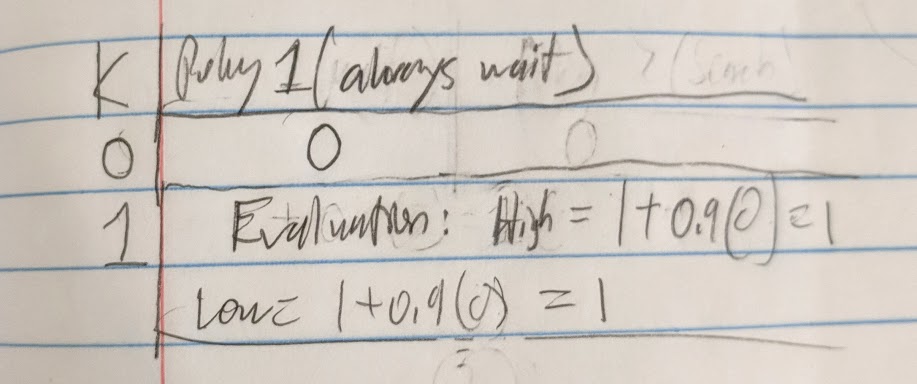 K Policy 1 (always wait)
0 0
1 Evaluation: High = 1 + 0.9(0) = 1
Low = 1 + 0.9(0) = 1